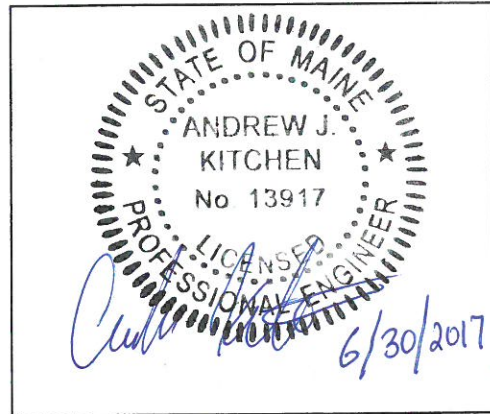 STATE OF MAINE
ANDREW J.
KITCHEN
No 13917
LICENSED
PROFESSIONAL ENGINEER
6/30/2017